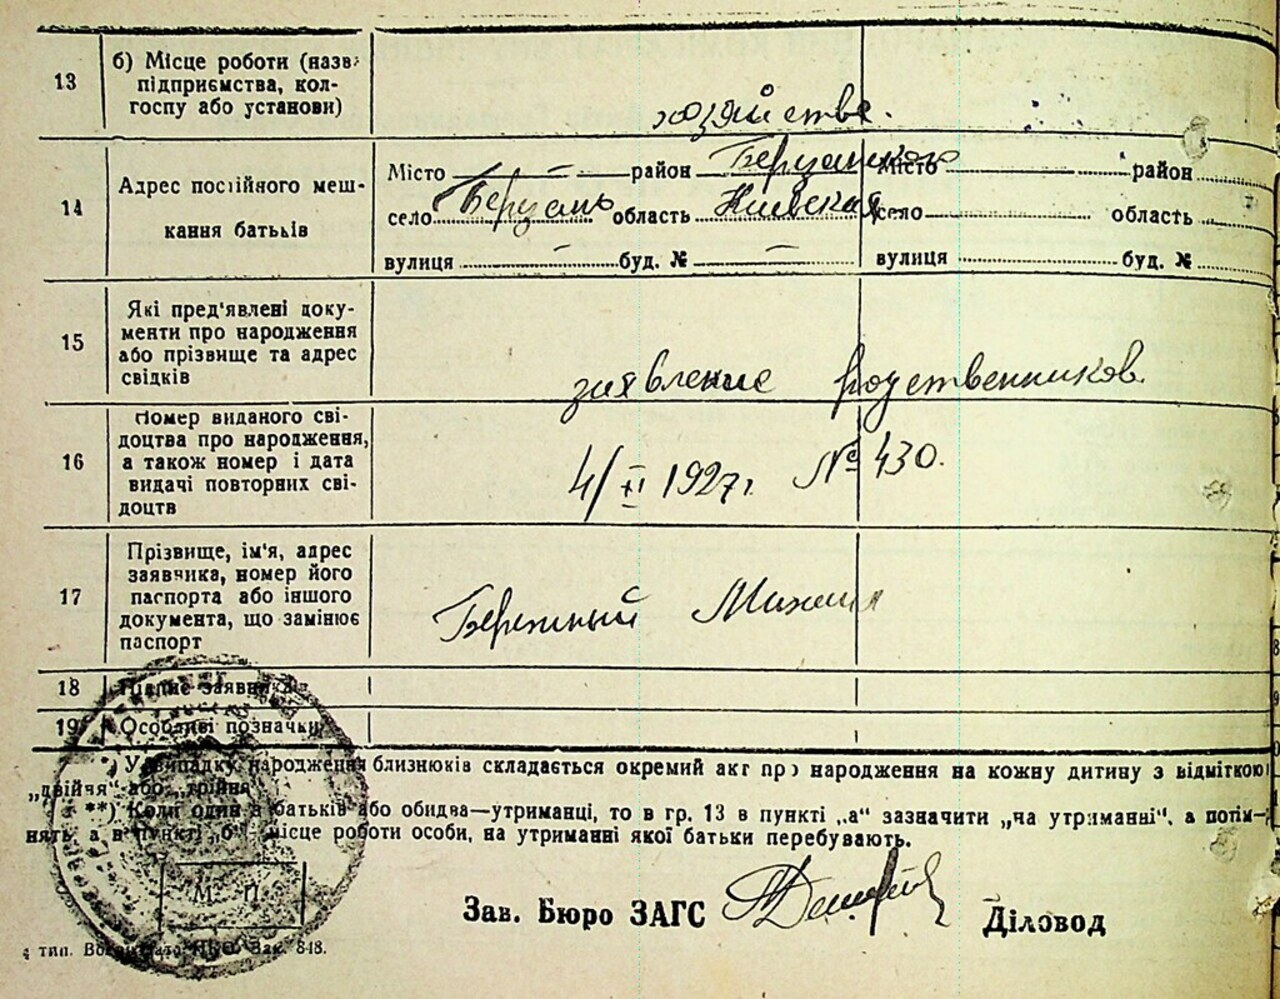 13
б) Місце роботи (назв
підприємства, кол-
госпу або установи)
хозяйстве.
14
Адрес постійного меш-
кання батьків
Місто — район
Місто район
село Березань область Киевская
село область
вулиця — буд. № —
вулиця буд. №
15
Які пред'явлені доку-
менти про народження
або прізвище та адрес
свідків
заявление родственников.
16
Номер виданого сві-
доцтва про народження,
а також номер і дата
видачі повторних сві-
доцтв
4/XI 1927г. № 430.
17
Прізвище, ім'я, адрес
заявчика, номер його
паспорта або іншого
документа, що замінює
паспорт
Бережный Михаил
18
Підпис заявчика
19
Особливі позначки
У випадку народження близнюків складається окремий акт про народження на кожну дитину з відміткою
„двійня" або „трійня
**) Коли один з батьків або обидва—утриманці, то в гр. 13 в пункті „а" зазначити „на утриманні", а потім—
нять, а в пункті „б" місце роботи особи, на утриманні якої батьки перебувають.
М П
Зав. Бюро ЗАГС
Діловод
4 тип. Зак. 848.